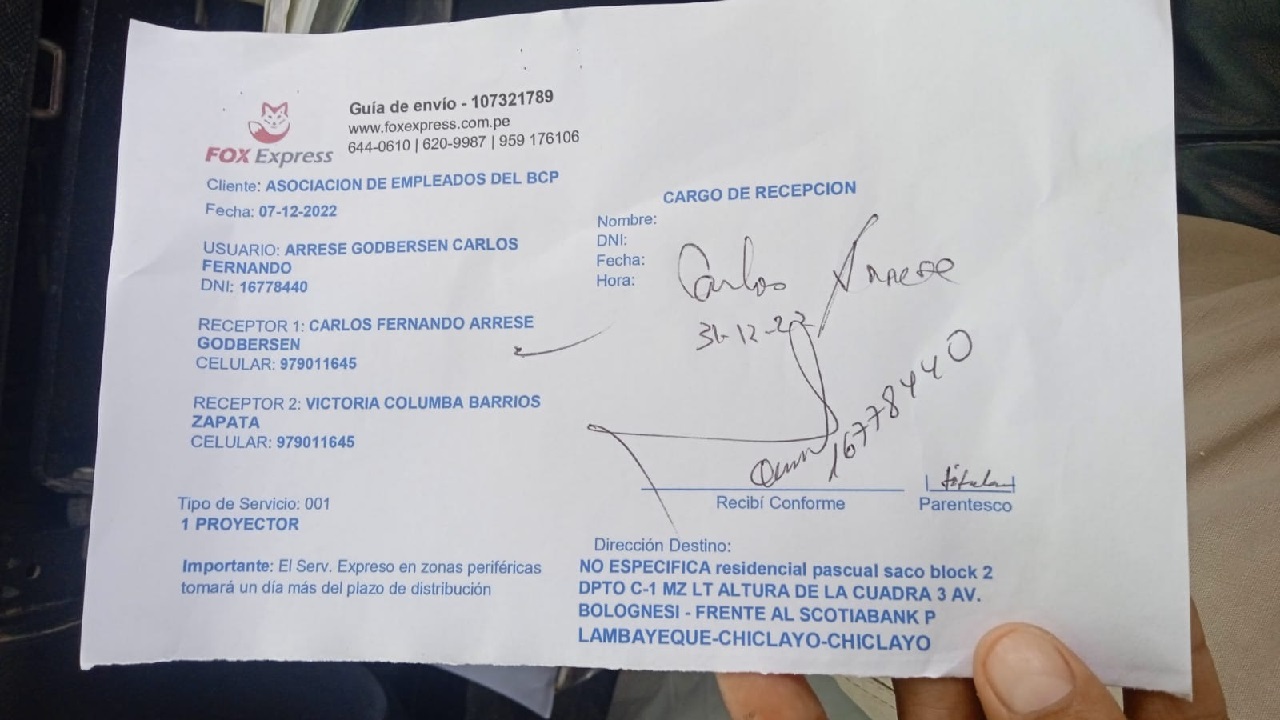 Guía de envío - 107321789
www.foxexpress.com.pe
644-0610 | 620-9987 | 959 176106
FOX Express
Cliente: ASOCIACION DE EMPLEADOS DEL BCP
Fecha: 07-12-2022
USUARIO: ARRESE GODBERSEN CARLOS
FERNANDO
DNI: 16778440
RECEPTOR 1: CARLOS FERNANDO ARRESE
GODBERSEN
CELULAR: 979011645
RECEPTOR 2: VICTORIA COLUMBA BARRIOS
ZAPATA
CELULAR: 979011645
Tipo de Servicio: 001
1 PROYECTOR
Importante: El Serv. Expreso en zonas periféricas
tomará un día más del plazo de distribución
CARGO DE RECEPCION
Nombre:
DNI:
Fecha:
Hora:
Carlos Arrese
31-12-22
16778440
titular
Recibí Conforme
Parentesco
Dirección Destino:
NO ESPECIFICA residencial pascual saco block 2
DPTO C-1 MZ LT ALTURA DE LA CUADRA 3 AV.
BOLOGNESI - FRENTE AL SCOTIABANK P
LAMBAYEQUE-CHICLAYO-CHICLAYO